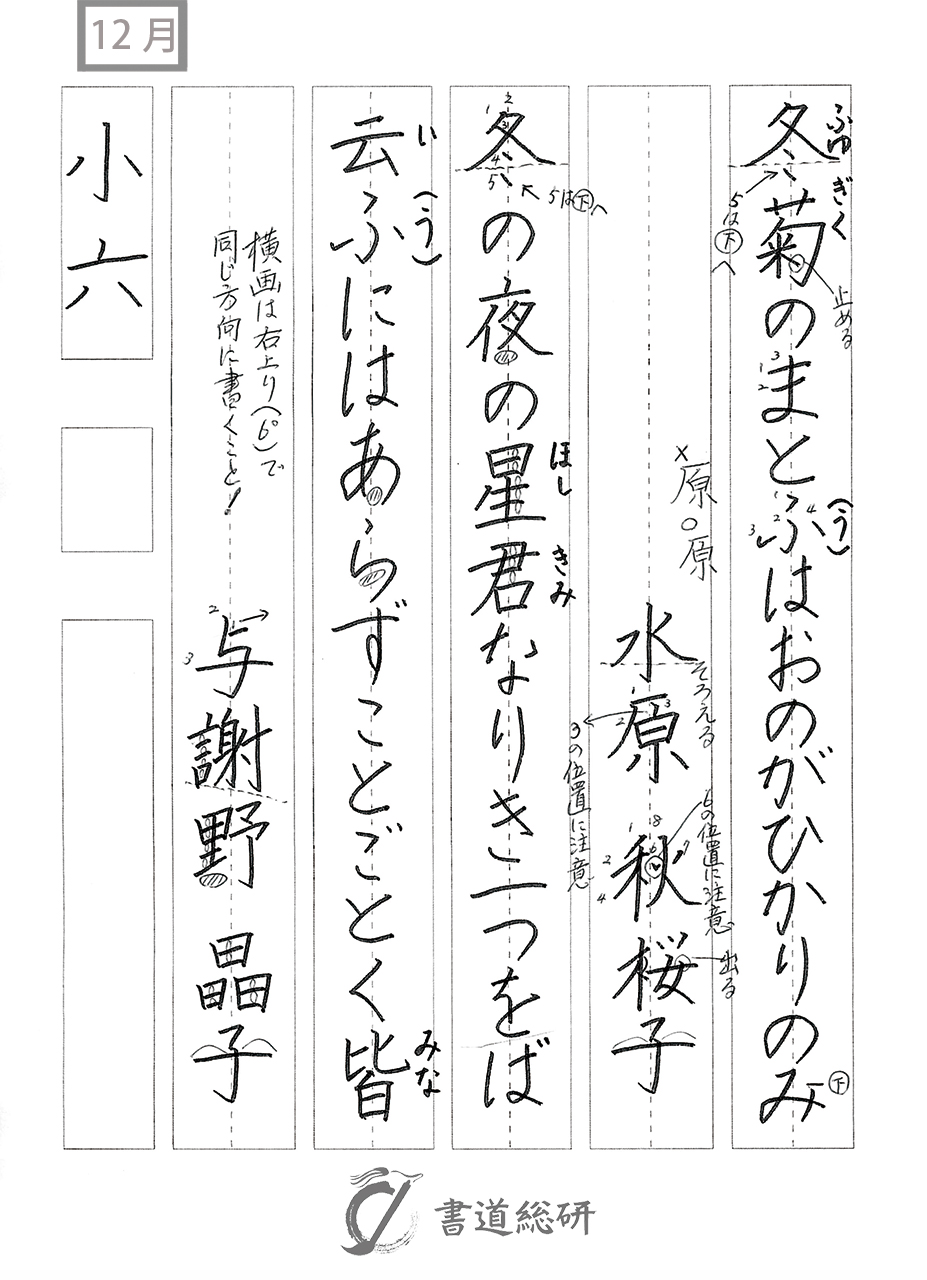 12月
冬菊のまとふはおのがひかりのみ
ふゆ
ぎく
(う)
5は下へ
止める
下
×原○原
水原秋桜子
そろえる
3の位置に注意
6の位置に注意
出る
冬の夜の星君なりき一つをば
ほし
きみ
5は下へ
云ふにはあらずことごとく皆
い
(う)
みな
横画は右上り(6°)で
同じ方向に書くこと!
与謝野晶子
小六
書道総研